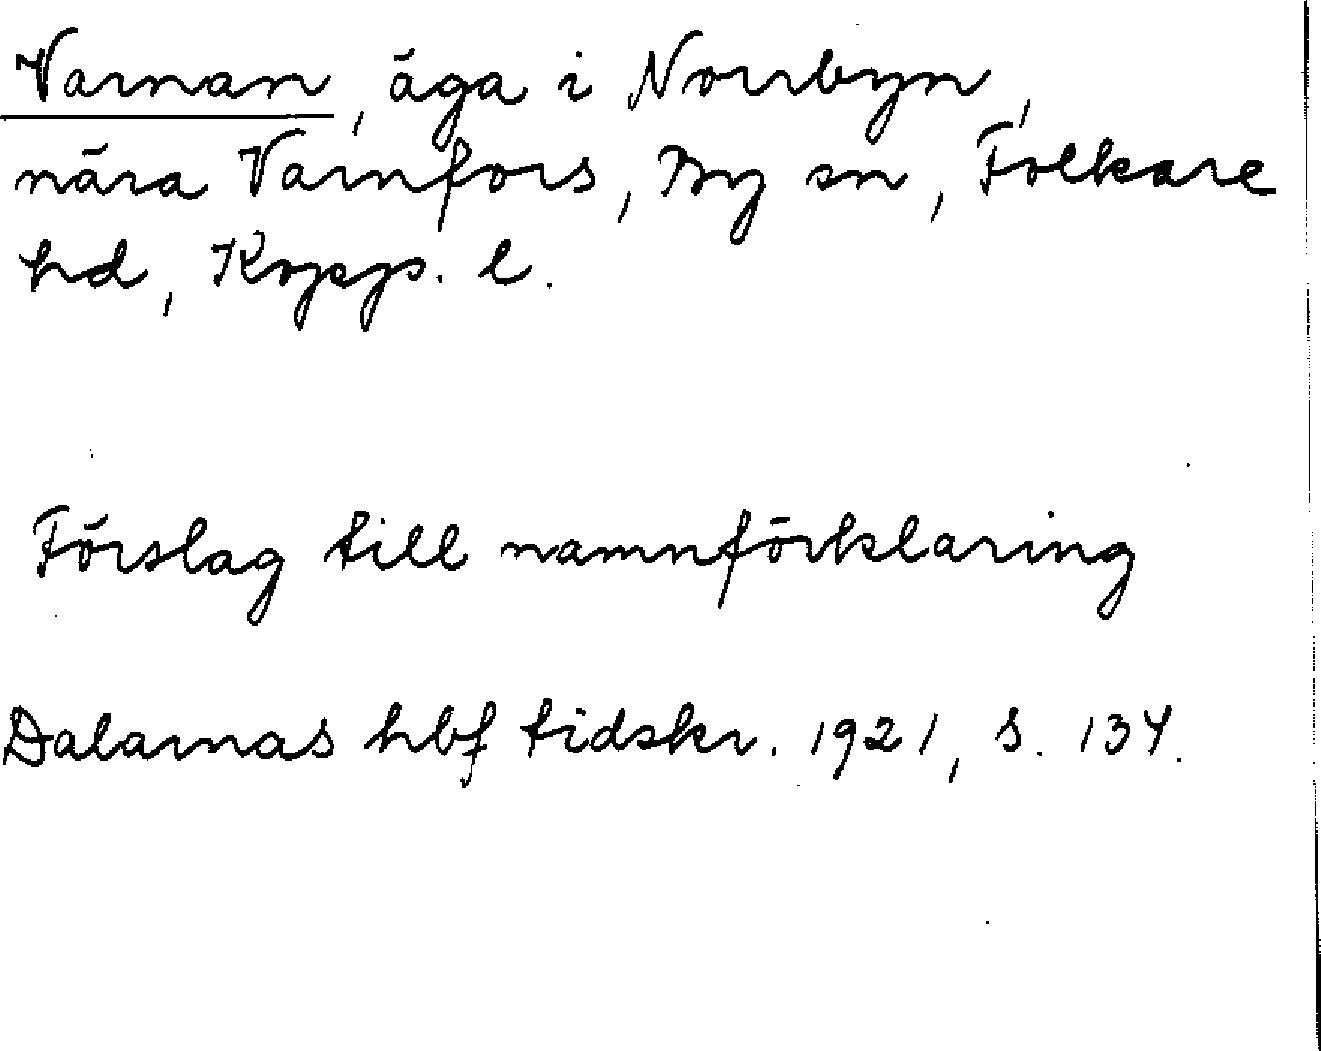 Varnan, äga i Norrbyn,
nära Varnfors, By sn, Folkare
hd, Kopp. l.
Förslag till namnförklaring
Dalarnas hbf tidskr. 1921, s. 134.